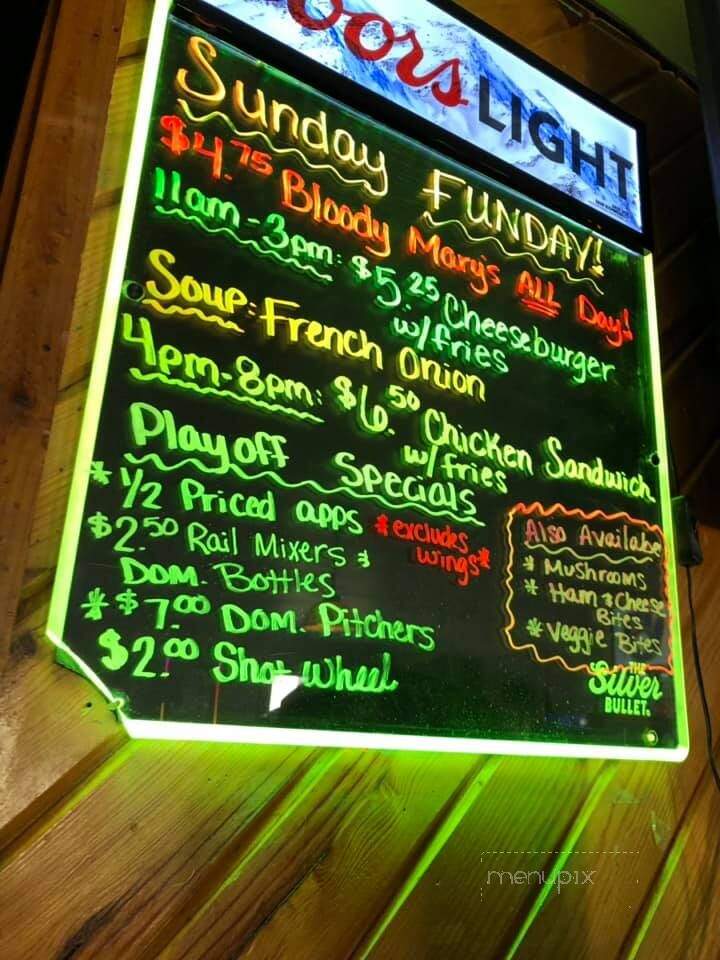 Coors LIGHT
Sunday FUNDAY!
$4.75 Bloody Mary's ALL Day!
11am-3pm: $5.25 Cheeseburger
w/fries
Soup: French Onion
4pm-8pm: $6.50 Chicken Sandwich
w/fries
Playoff Specials
* 1/2 Priced apps *excludes
wings*
$2.50 Rail Mixers &
Dom. Bottles
* $7.00 Dom. Pitchers
$2.00 Shot Wheel
Also Availabe
* Mushrooms
* Ham & Cheese
Bites
* Veggie Bites
THE
Silver
BULLET
menupix